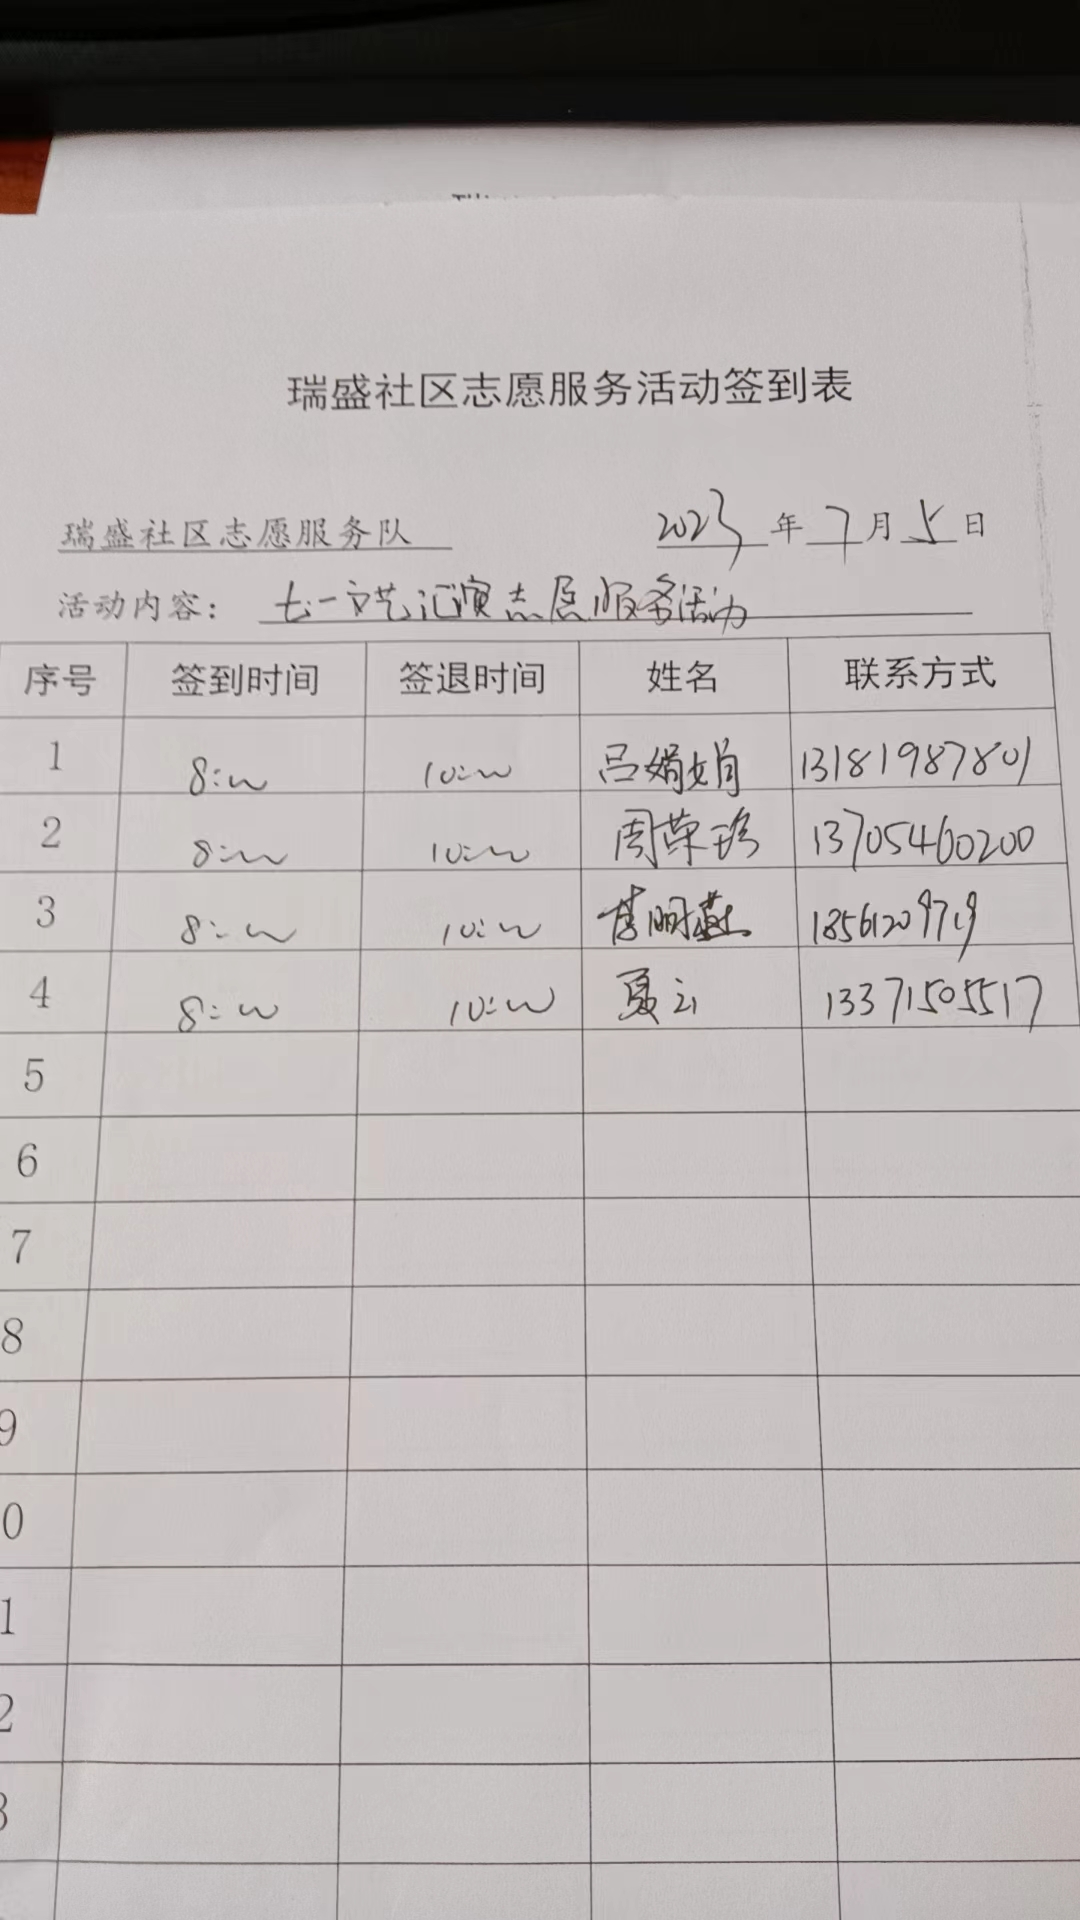 瑞盛社区志愿服务活动签到表
瑞盛社区志愿服务队 2023年7月5日
活动内容：七一文艺汇演志愿服务活动
序号 签到时间 签退时间 姓名 联系方式
1 8:00 10:00 吕娟娟 13181987801
2 8:00 10:00 周荣珍 13705460200
3 8:00 10:00 燕
4 8:00 10:00 夏云 13371505517
5
6
7
8
9
0
1
2
3